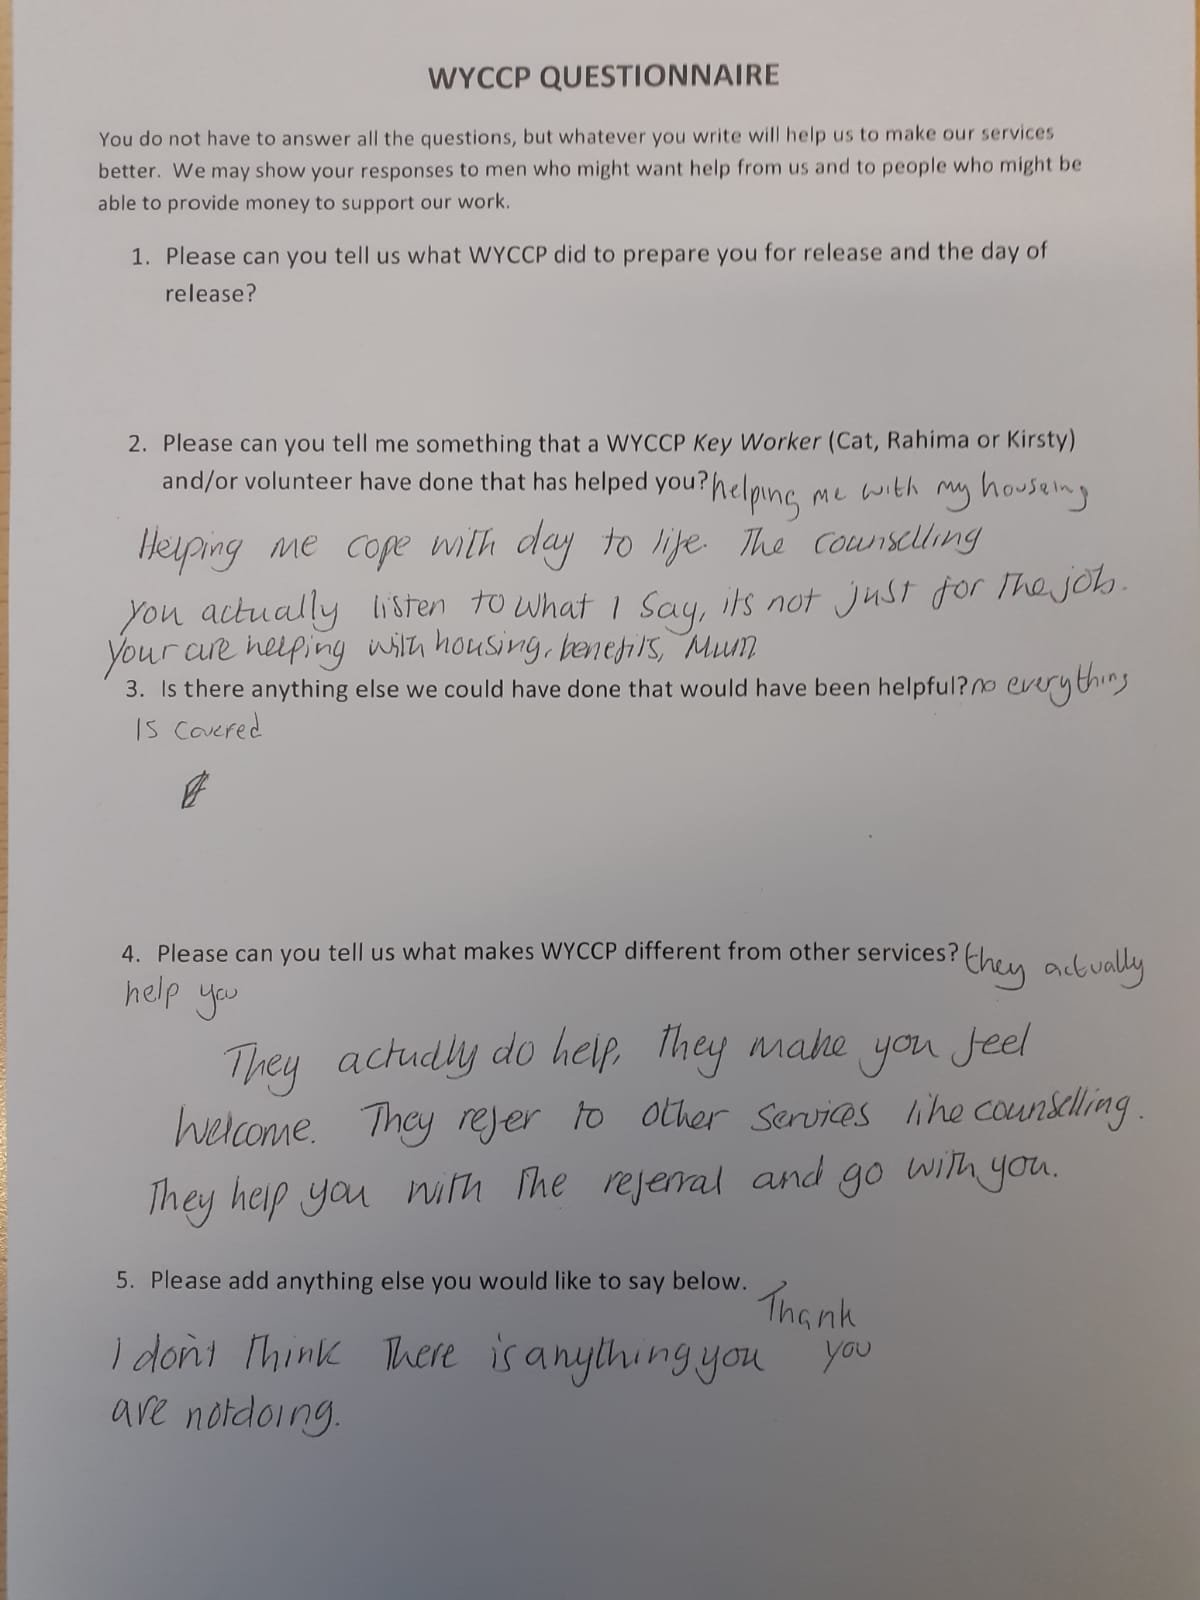 WYCCP QUESTIONNAIRE
You do not have to answer all the questions, but whatever you write will help us to make our services
better. We may show your responses to men who might want help from us and to people who might be
able to provide money to support our work.
1. Please can you tell us what WYCCP did to prepare you for release and the day of
release?
2. Please can you tell me something that a WYCCP Key Worker (Cat, Rahima or Kirsty)
and/or volunteer have done that has helped you? helping me with my houseing
Helping me cope with day to life. The counselling
you actually listen to what I say, its not just for the job.
Your are helping with housing, benefits, Mum
3. Is there anything else we could have done that would have been helpful? no everything
IS covered
4. Please can you tell us what makes WYCCP different from other services? they actually
help you
They actually do help, They make you feel
welcome. They refer to other services like counselling.
They help you with the referral and go with you.
5. Please add anything else you would like to say below. Thank
I don't Think There is anything you you
are not doing.